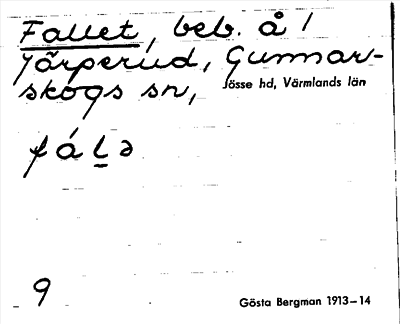 Fallet, beb. å 1
Järperud, Gunnar-
skogs sn, Jösse hd, Värmlands län
fáḻə
9
Gösta Bergman 1913–14